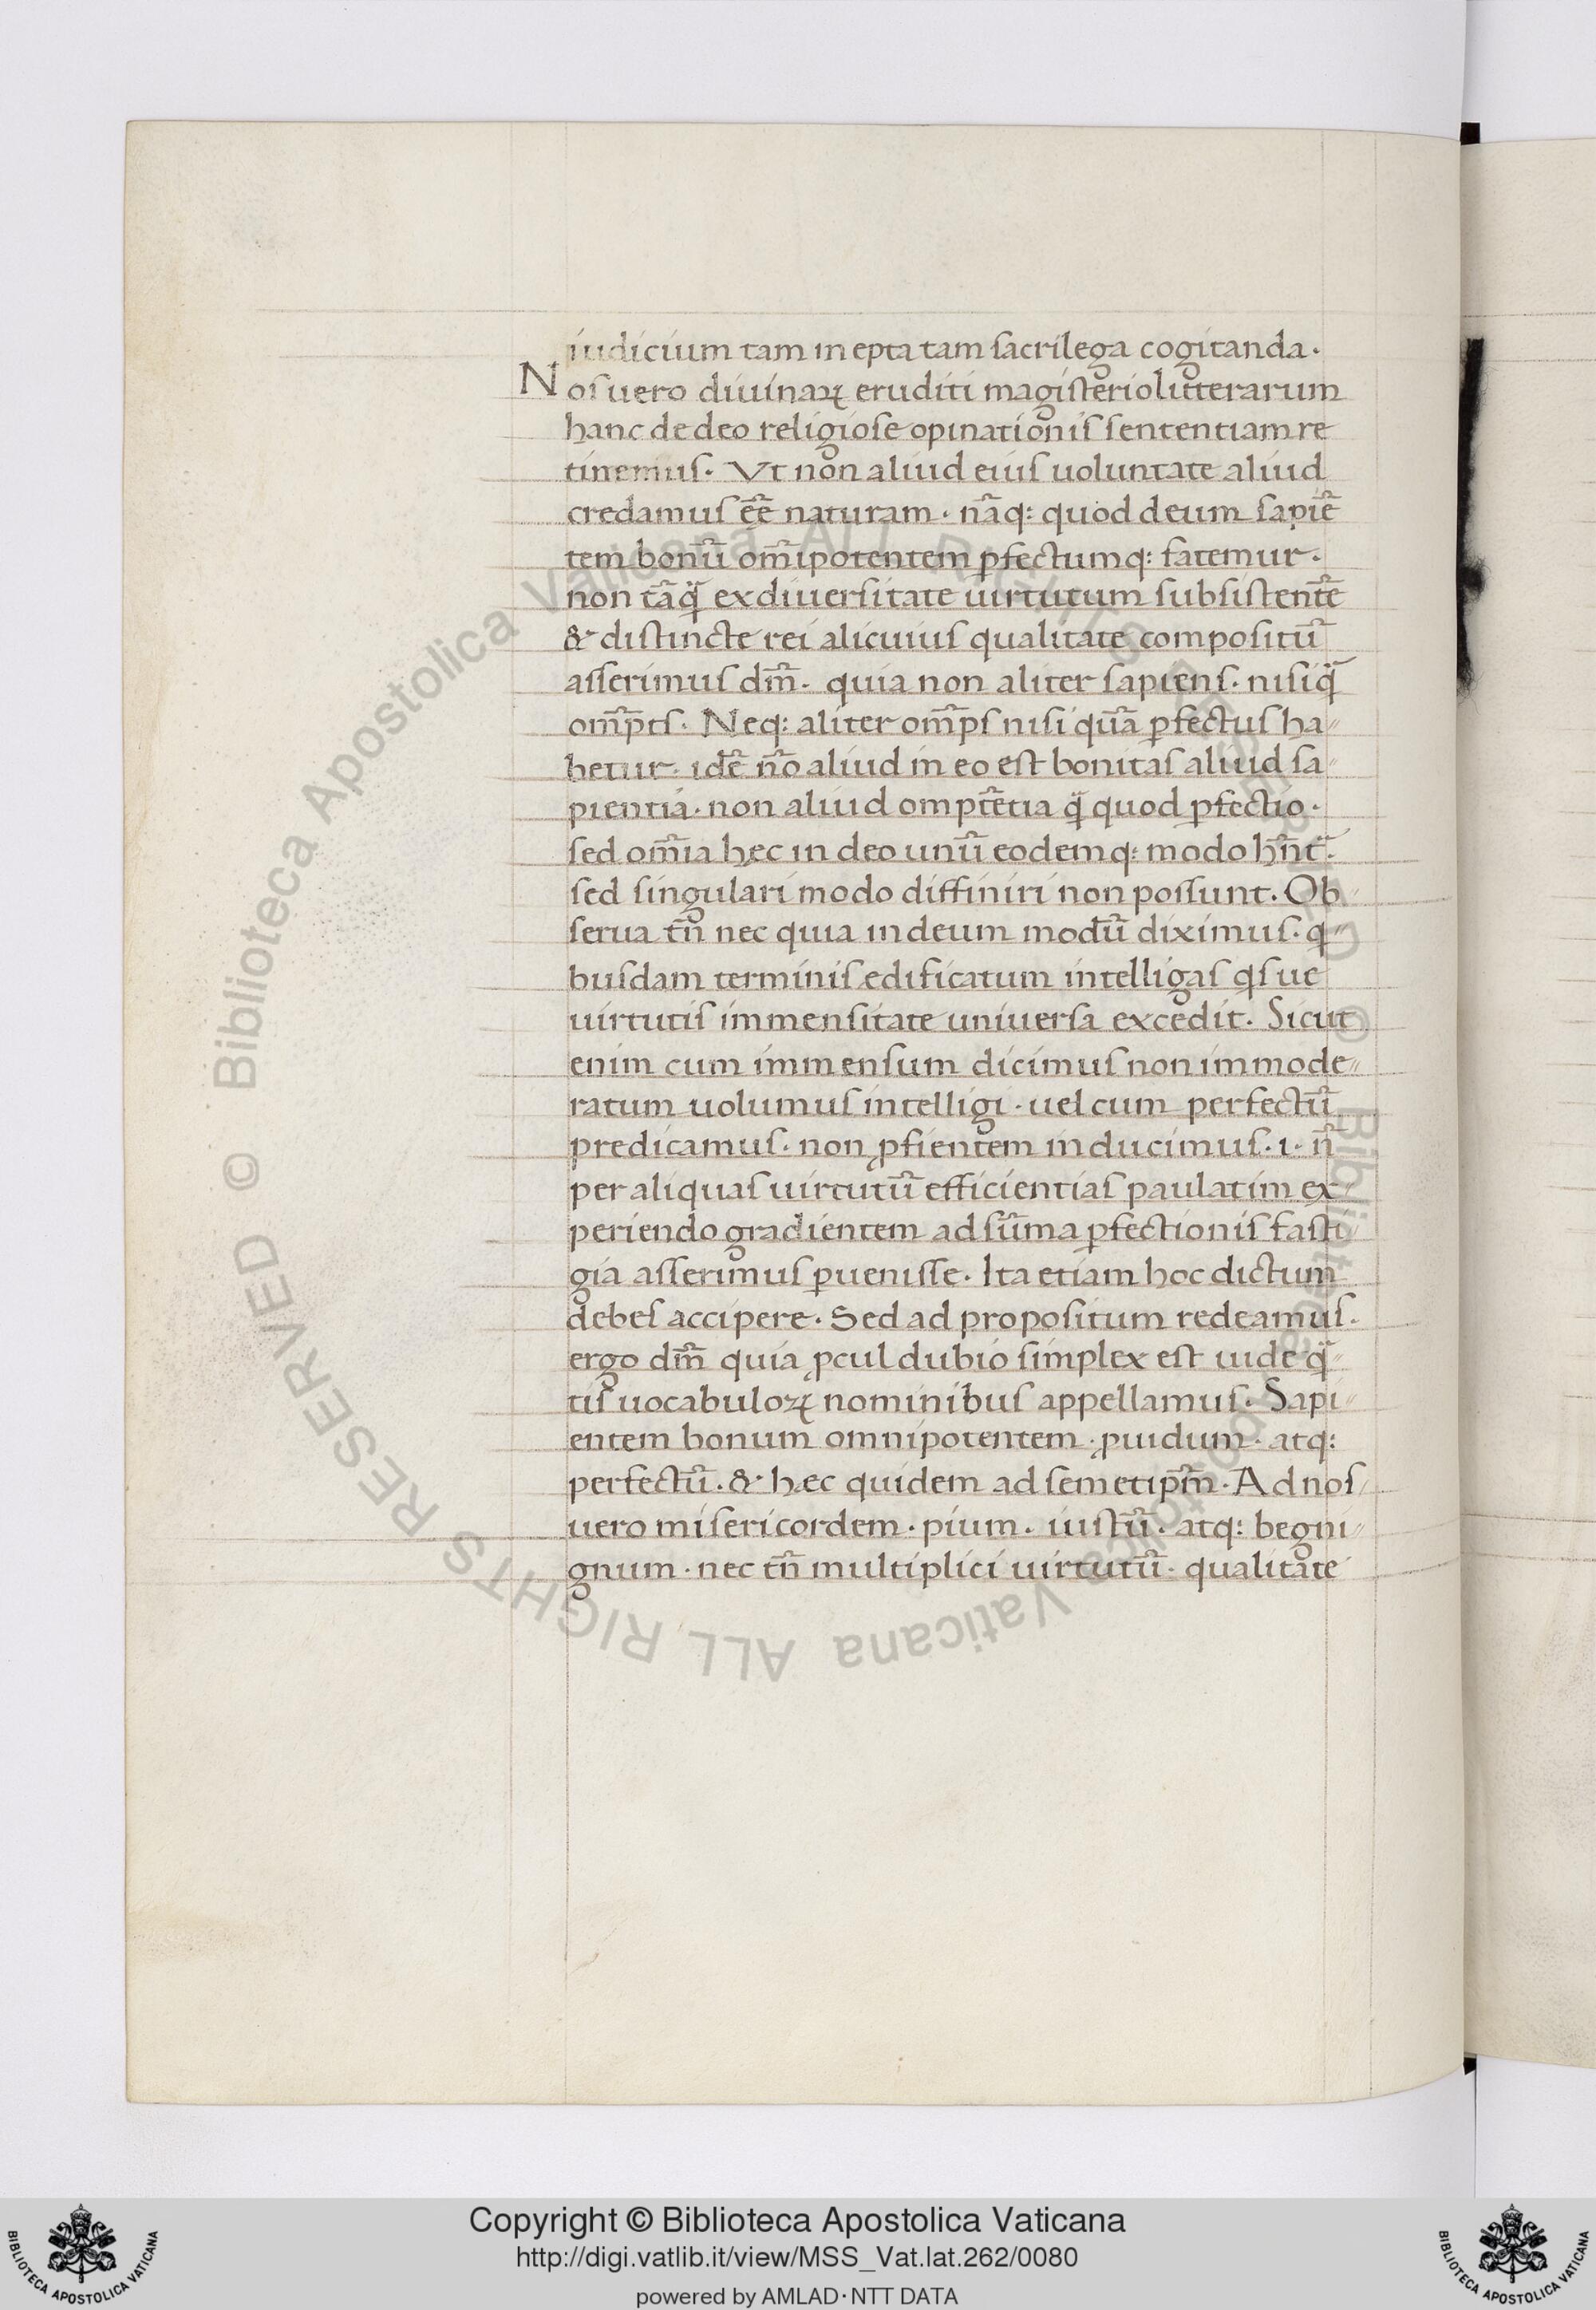 iudicium tam inepta tam sacrilega cogitanda.
Nos uero diuinaꝝ eruditi magisterio litterarum
hanc de deo religiose opinationis sententiam re
tinemus. Vt non aliud eius uoluntate aliud
credamus eē naturam. nāq: quod deum sapiē
tem bonū om̄ipotentem ꝑfectumq: fatemur.
non tāq̄ ex diuersitate uirtutum subsistentē
& distincte rei alicuius qualitate compositū
asserimus dm̄. quia non aliter sapiens. nisi q̄
om̄pts. Neq: aliter om̄ps nisi quā ꝑfectus ha〃
betur. idē n̄o aliud in eo est bonitas aliud sa〃
pientia. non aliud omptētia q̄ quod ꝑfectio.
sed om̄ia hec in deo unū eodemq: modo hn̄t̄.
sed singulari modo diffiniri non possunt. Ob〃
serua tn̄ nec quia in deum modū diximus. q〃
busdam terminis edificatum intelligas qsue
uirtutis immensitate uniuersa excedit. Sicut
enim cum immensum dicimus non immode〃
ratum uolumus intelligi. uel cum perfectū
predicamus. non ꝓfientem inducimus. i. n̄
per aliquas uirtutū efficientias paulatim ex〃
periendo gradientem ad sūma ꝑfectionis fasti〃
gia asserimus ꝑuenisse. Ita etiam hoc dictum
debes accipere. Sed ad propositum redeamus.
ergo dm̄ quia ꝓcul dubio simplex est uide q̄〃
tis uocabuloꝝ nominibus appellamus. Sapi〃
entem bonum omnipotentem. ꝓuidum. atq:
perfectū. & hæc quidem ad semetipm̄. Ad nos〃
uero misericordem. pium. iustū. atq: begni〃
gnum. nec tn̄ multiplici uirtutū. qualitate
© Biblioteca Apostolica Vaticana ALL RIGHTS RESERVED
© Biblioteca Apostolica Vaticana ALL RIGHTS RESERVED
Copyright © Biblioteca Apostolica Vaticana
http://digi.vatlib.it/view/MSS_Vat.lat.262/0080
powered by AMLAD·NTT DATA
BIBLIOTECA APOSTOLICA VATICANA
BIBLIOTECA APOSTOLICA VATICANA